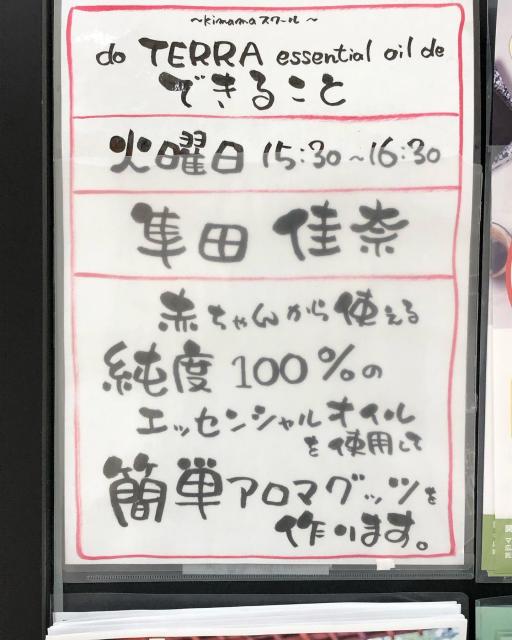 ～kimamaスクール～
do TERRA essential oil de
できること
火曜日 15:30～16:30
隼田 佳奈
赤ちゃんから使える
純度100%の
エッセンシャルオイル
を使用して
簡単アロマグッツを
作ります。